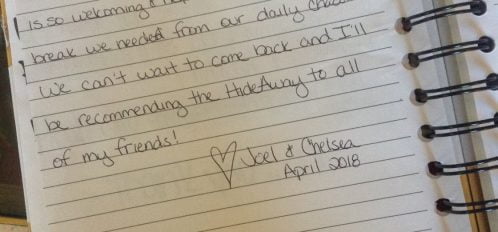 is so welcoming &
break we needed from our daily
we can't wait to come back and I'll
be recommending the HideAway to all
of my friends!
Joel & Chelsea
April 2018